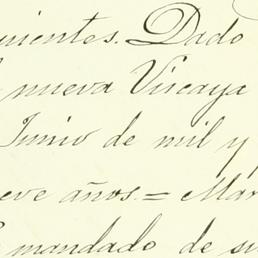 uientes. Dado
nueva Viscaya
Junio de mil y
eve años. = Mar
mandado de su